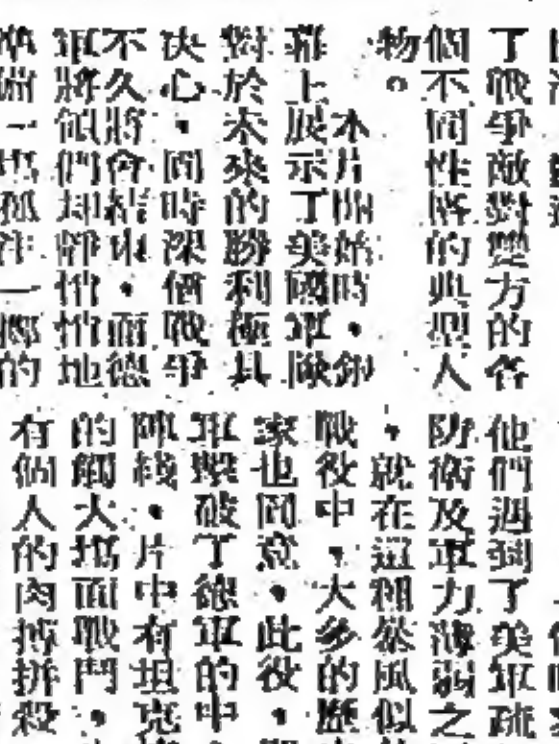 了戰爭敵對雙方的各
個不同性格的典型人
物。
本片開始時，銀
幕上展示了美國軍隊
對於未來的勝利極具
決心，同時深信戰爭
不久將會結束，而德
軍將領們却靜悄悄地
準備一場孤注一擲的
他們遇到了美軍疏
防衛及軍力薄弱之
，就在這個暴風似
戰役中，大多的歷
家也同意，此役
軍擊破了德軍的中
陣綫，片中有坦克
的龐大場面戰鬥，
有個人的肉搏拼殺